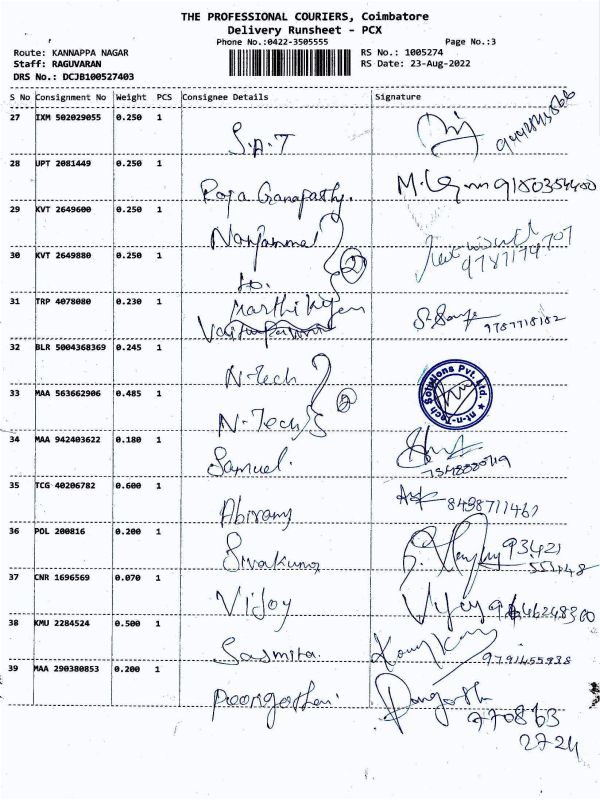 THE PROFESSIONAL COURIERS, Coimbatore
Delivery Runsheet - PCX
Phone No.:0422-3505555 Page No.:3
Route: KANNAPPA NAGAR RS No.: 1005274
Staff: RAGUVARAN RS Date: 23-Aug-2022
DRS No.: DCJB100527403
S No Consignment No Weight PCS Consignee Details Signature
27 IXM 502029055 0.250 1
S.A.T
28 UPT 2081449 0.250 1
Roja Ganapathy. 9180354400
29 KVT 2649600 0.250 1
Nanjammal
30 KVT 2649880 0.250 1 2 9787179707
to.
31 TRP 4078080 0.230 1
Karthikeyan 9787718182
32 BLR 5004368369 0.245 1
N-Tech
33 MAA 563662906 0.485 1 2 nt-n-Tech Solutions Pvt. Ltd.
N-Tech
34 MAA 942403622 0.180 1
Samuel.
35 TCG 40206782 0.600 1
Abiramy 8498711467
36 POL 200816 0.200 1
Sivakumar 93421
55448
37 CNR 1696569 0.070 1
Vijoy Vijay
38 KMU 2284524 0.500 1
Sasmita. 9791455938
39 MAA 290380853 0.200 1
Poongothai. 770863
2724